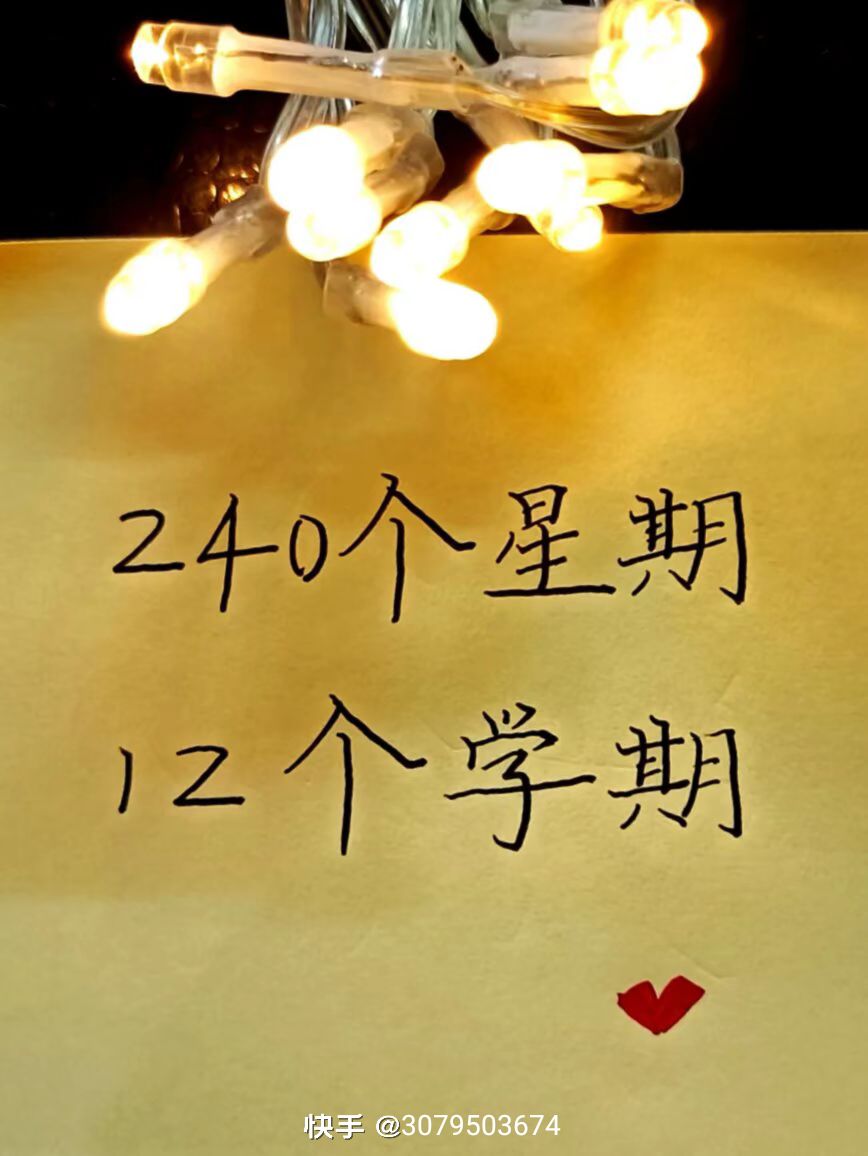 240个星期
12个学期
快手 @3079503674